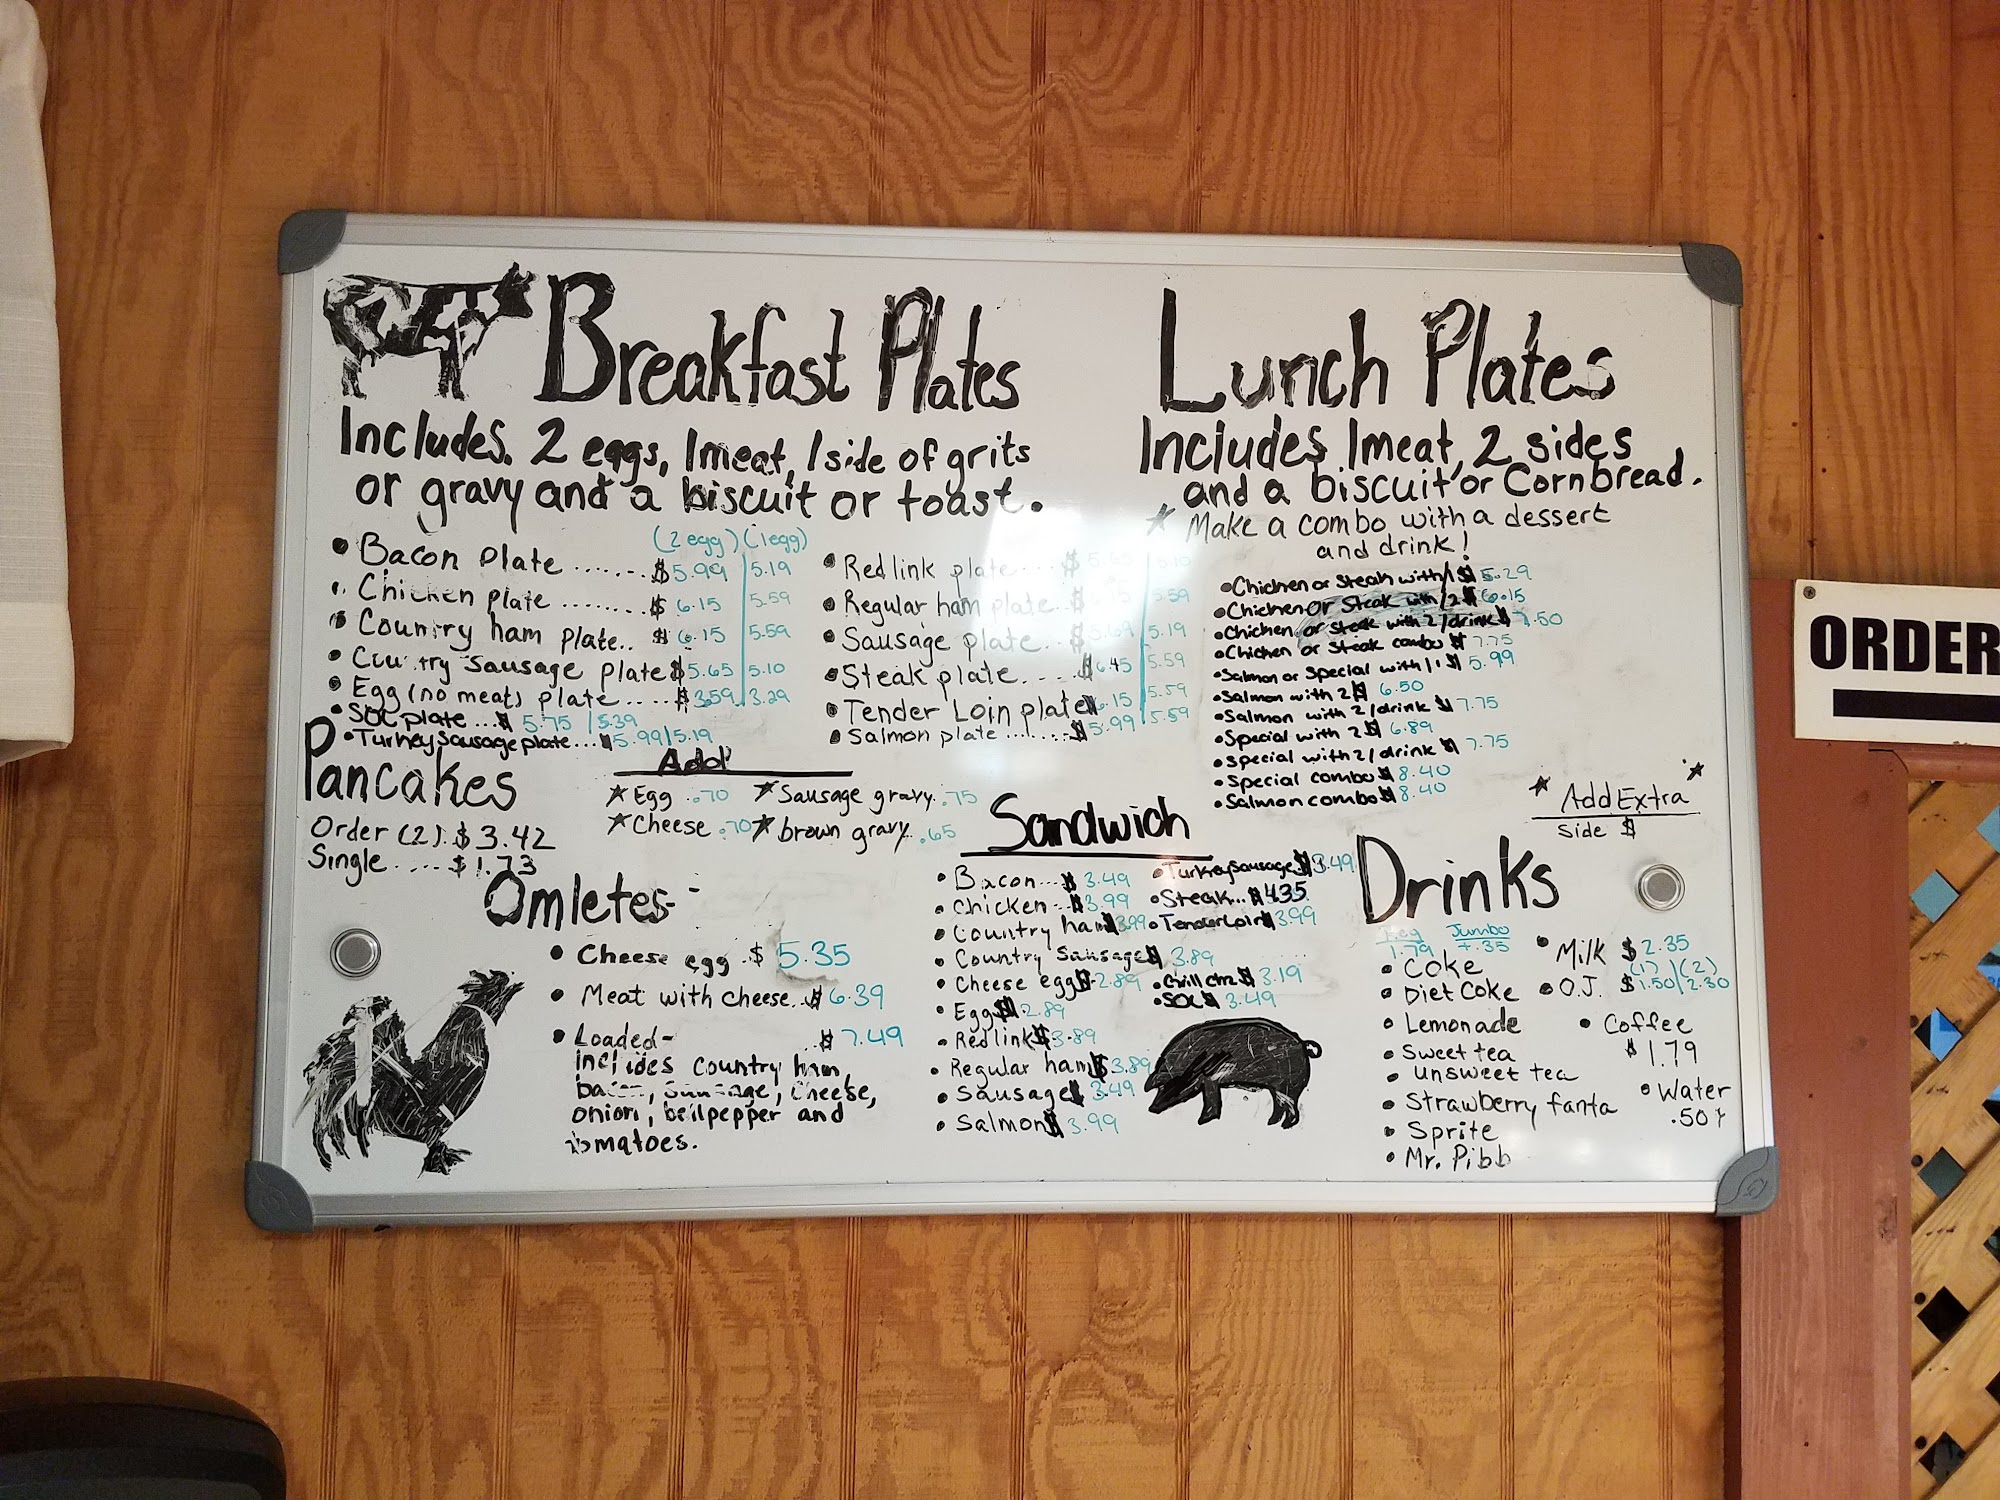 Breakfast Plates
Includes. 2 eggs, 1 meat, 1 side of grits
or gravy and a biscuit or toast.
(2 egg) (1 egg)
• Bacon plate ....... $5.99 | 5.19
• Chicken plate ........ $ 6.15 | 5.59
• Country ham plate.. $ 6.15 | 5.59
• Country Sausage plate $5.65 | 5.10
• Egg (no meat) plate .... $3.59 | 3.29
• SOC plate ... $ 5.75 | 5.39
• Turkey Sausage plate.... $5.99 | 5.19
• Red link plate .... $
• Regular ham plate... $ 5.59
• Sausage plate... $ 5.19
• Steak plate.... $6.45 | 5.59
• Tender Loin plate 6.15 | 5.59
• Salmon plate ....... $5.99 | 5.59
Pancakes
Order (2). $3.42
Single .... $1.73
Add
★ Egg .70 ★ Sausage gravy .75
★ Cheese .70 ★ brown gravy .65
Omletes-
• Cheese egg $ 5.35
• Meat with cheese.. $6.39
• Loaded- $ 7.49
includes country ham,
bacon, sausage, cheese,
onion, bellpepper and
tomatoes.
Sandwich
• Bacon... $ 3.49
• Chicken .. $3.99
• Country ham $3.99
• Country Sausage $ 3.89
• Cheese egg $2.89
• Egg $2.89
• Red link $3.89
• Regular ham $3.89
• Sausage $3.49
• Salmon $3.99
• Turkey Sausage $3.49
• Steak... $4.35
• Tender Loin $3.99
• Grill chz $ 3.19
• SOC $ 3.49
Lunch Plates
Includes 1 meat, 2 sides
and a biscuit or Cornbread.
★ Make a combo with a dessert
and drink!
• Chicken or Steak with 1 $ 5.29
• Chicken or Steak with 2 $ 6.15
• Chicken or steak with 2/drink $ 7.50
• Chicken or Steak combo $ 7.75
• Salmon or Special with 1 $ 5.99
• Salmon with 2 $ 6.50
• Salmon with 2/drink $ 7.75
• Special with 2 $ 6.89
• Special with 2/drink $ 7.75
• Special combo $ 8.40
• Salmon combo $ 8.40
★ Add Extra ★
Side $
Drinks
Reg Jumbo
1.79 +.35
• Coke
• Diet Coke
• Lemonade
• Sweet tea
• unsweet tea
• Strawberry fanta
• Sprite
• Mr. Pibb
• Milk $ 2.35
(1) (2)
• O.J. $1.50 | 2.30
• Coffee
$ 1.79
• Water
.50¢
ORDER